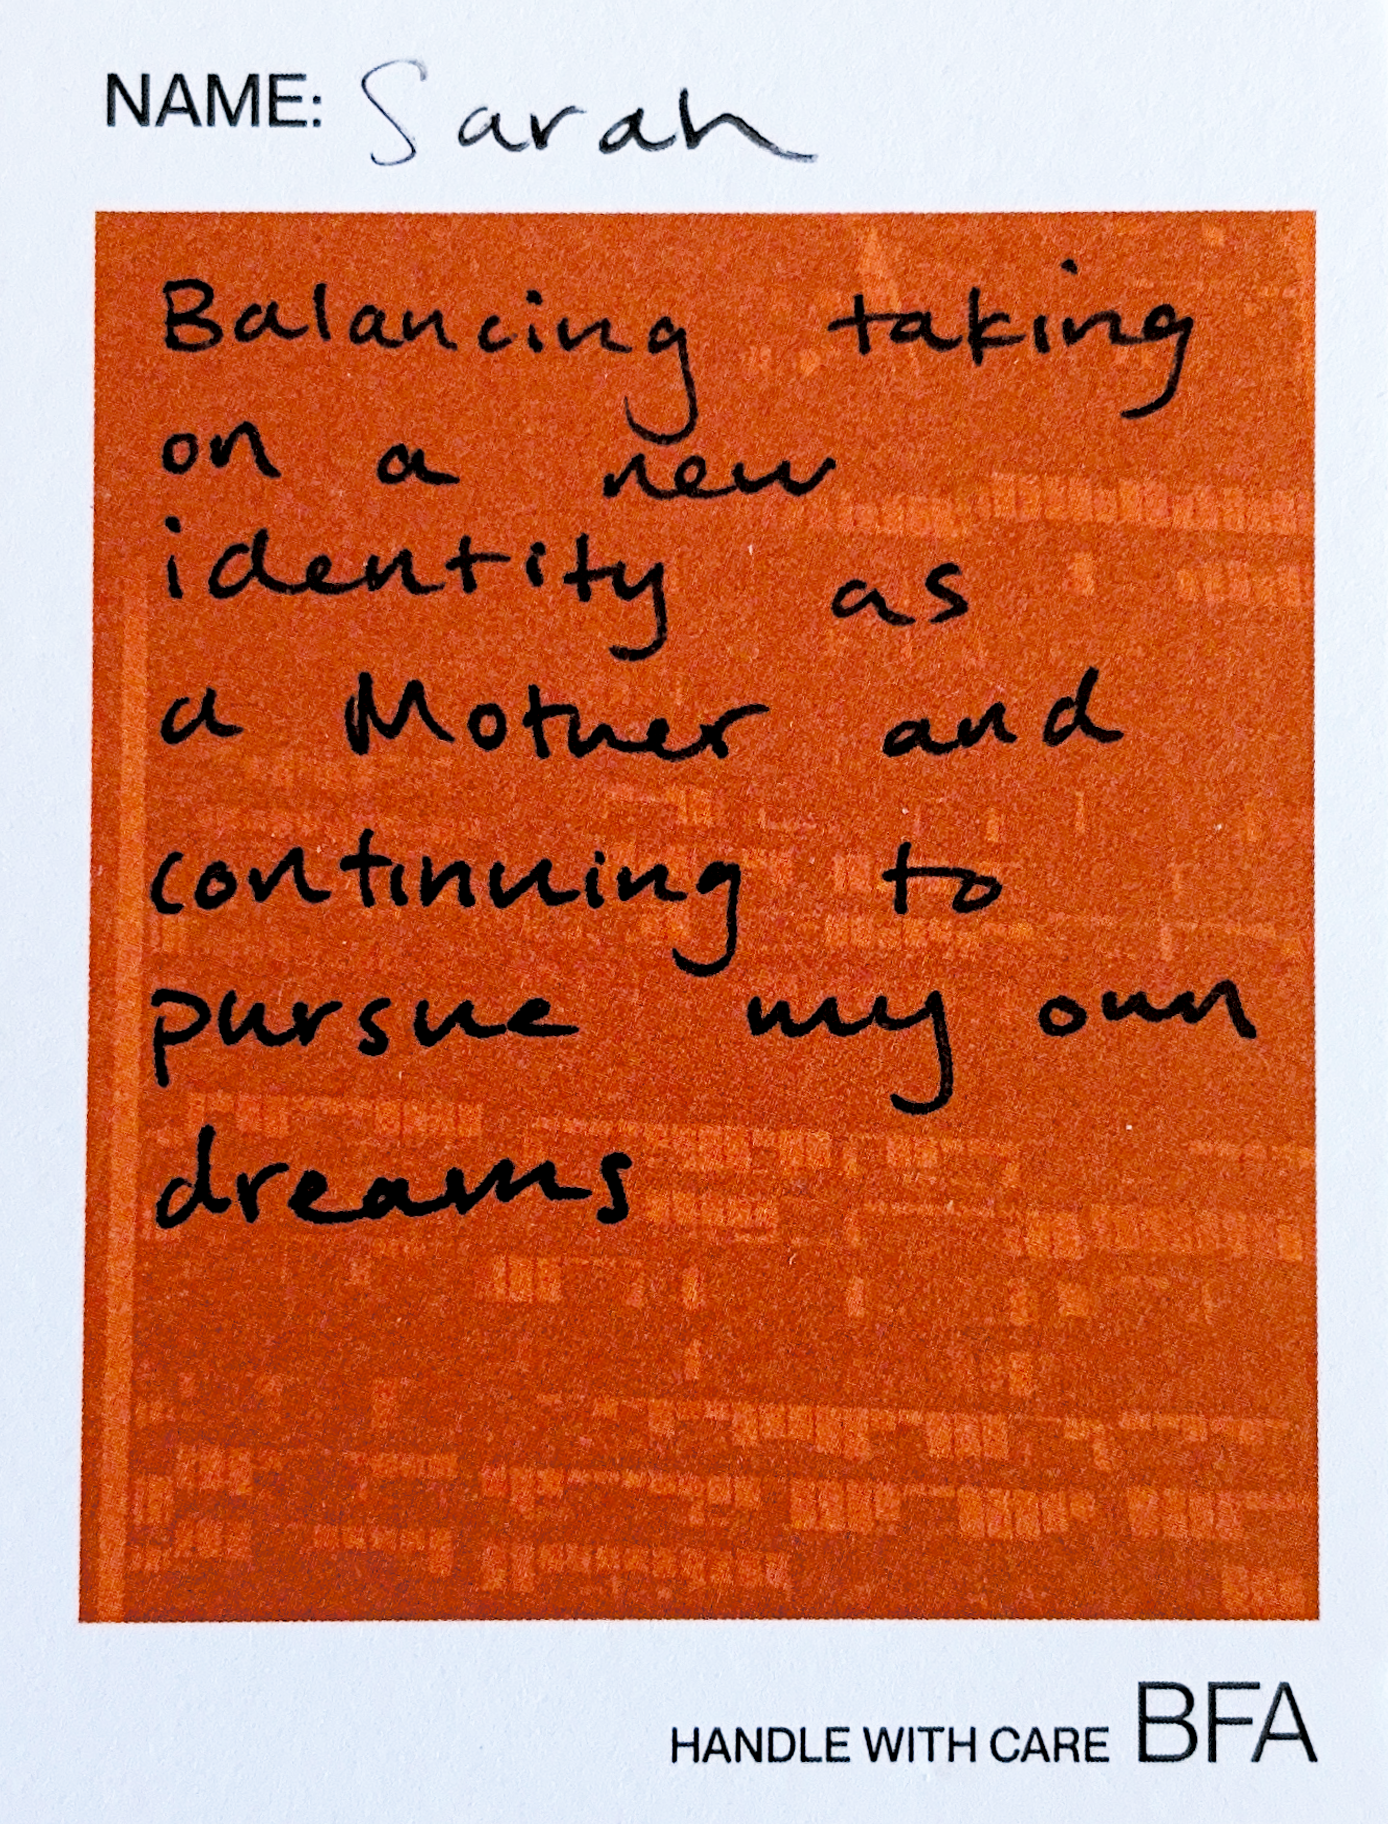 NAME: Sarah
Balancing taking
on a new
identity as
a Mother and
continuing to
pursue my own
dreams
HANDLE WITH CARE BFA